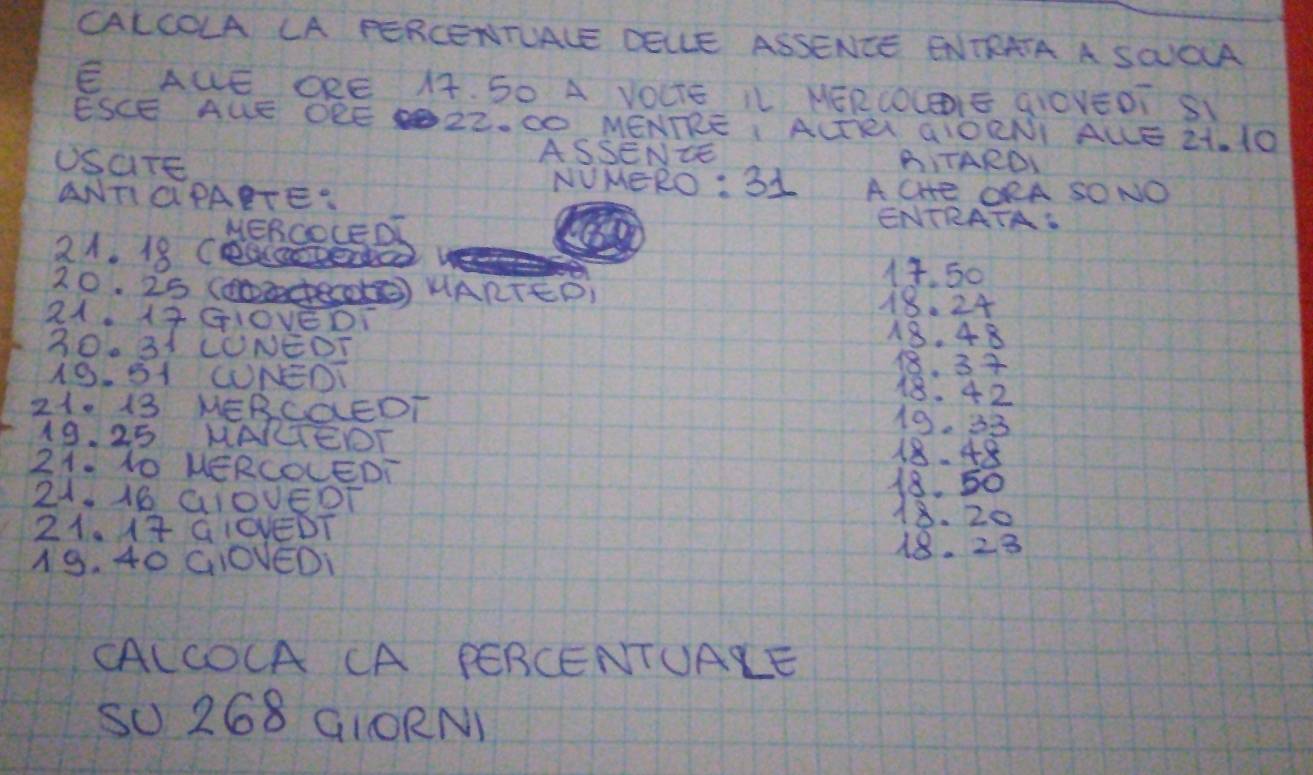 CALCOLA LA PERCENTUALE DELLE ASSENZE ENTRATA A SCUOLA
E ALLE ORE 17.50 A VOLTE IL MERCOLEDI E GIOVEDÌ SI
ESCE ALLE ORE 22.00 MENTRE I ALTRI GIORNI ALLE 21.10
USCITE
ANTICIPARTE:
MERCOLEDÌ
21.18
20.25 MARTEDI
21.17 GIOVEDÌ
20.31 LUNEDÌ
19.51 LUNEDÌ
21.13 MERCOLEDÌ
19.25 MARTEDÌ
21.10 MERCOLEDÌ
21.16 GIOVEDÌ
21.17 GIOVEDÌ
19.40 GIOVEDI
ASSENZE
NUMERO: 31
RITARDI
A CHE ORA SONO
ENTRATA:
17.50
18.24
18.48
18.37
18.42
19.33
18.48
18.50
18.20
18.23
CALCOLA LA PERCENTUALE
SU 268 GIORNI